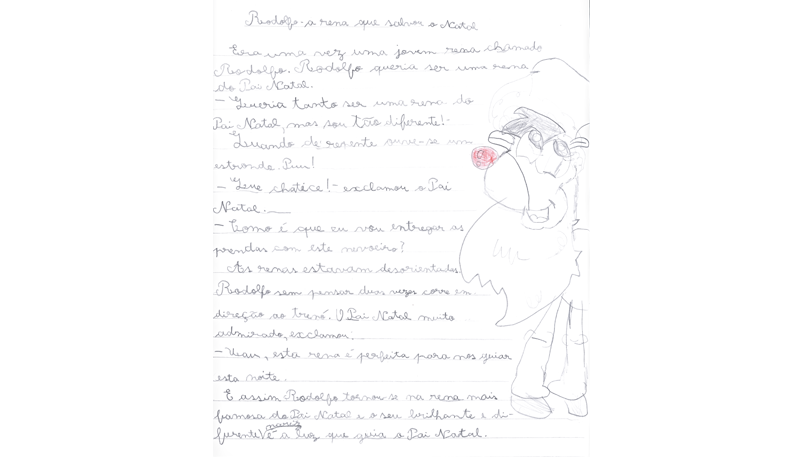 Rodolfo - a rena que salvou o Natal
Era uma vez uma jovem rena chamado
Rodolfo. Rodolfo queria ser uma rena
do Pai Natal.
- Queria tanto ser uma rena do
Pai Natal, mas sou tão diferente!-
Quando de repente ouve-se um
estrondo. Puu!
- Que chatice! - exclamou o Pai
Natal.
- Como é que eu vou entregar as
prendas com este nevoeiro?
As renas estavam desorientadas
Rodolfo sem pensar duas vezes corre em
direção ao trenó. O Pai Natal muito
admirado, exclamou.
- Uau, esta rena é perfeita para nos guiar
esta noite.
E assim Rodolfo tornou-se na rena mais
famosa do Pai Natal e o seu brilhante e di-
nariz
ferente é a luz que guia o Pai Natal.